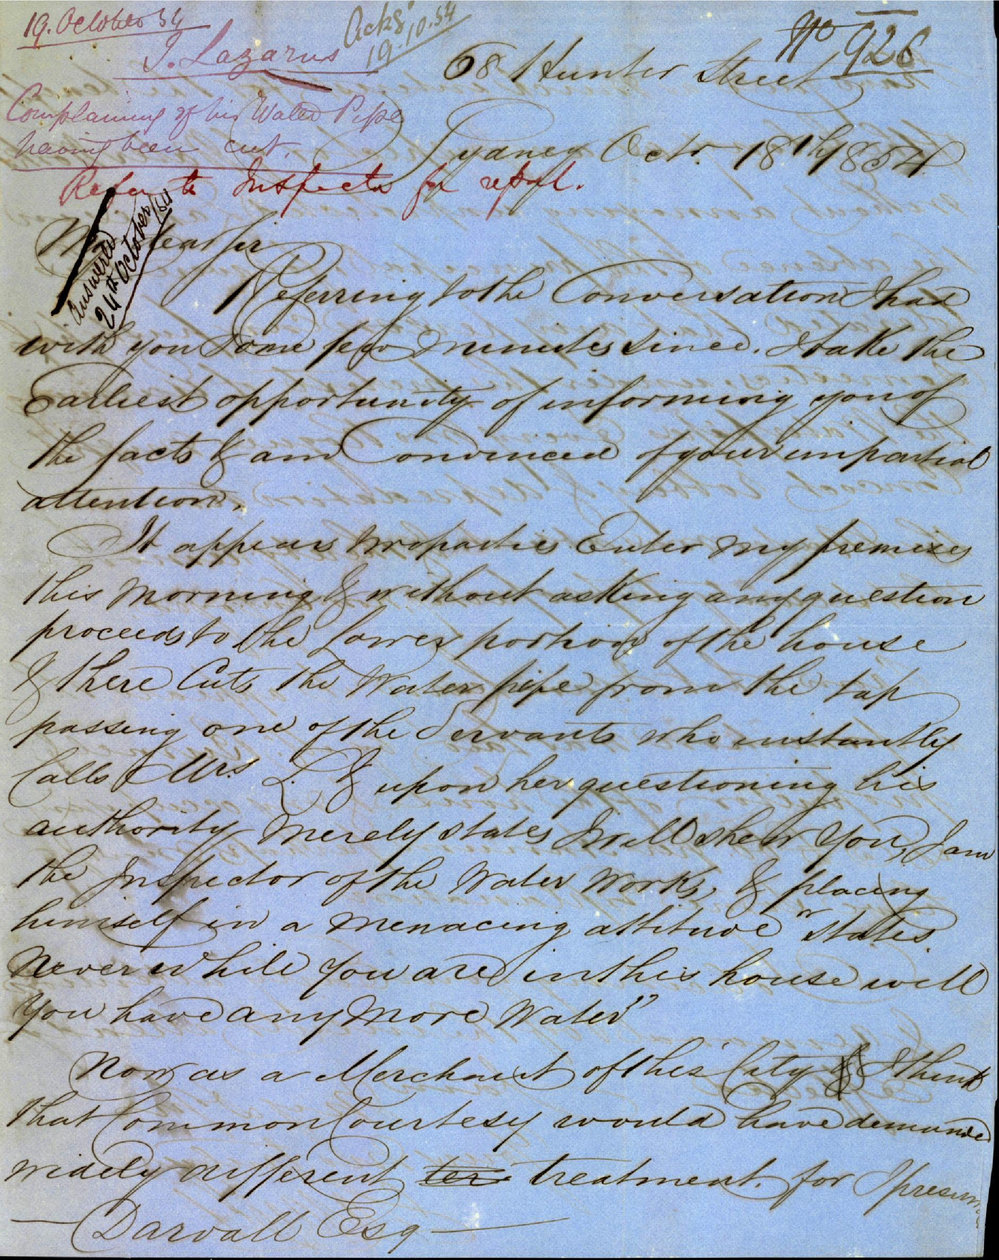 19. October 54
Ackd
19.10.54
No 926
J. Lazarus
68 Hunter Street
Complaining of his Water Pipe
having been cut.
Sydney Octr. 18th 1854
Refer to Inspector for report.
Answered
24th October /54
My dear sir
Referring to the Conversation I had
with you Some few Minutes since. I take the
Earliest opportunity of informing you of
the facts & am Convinced of your impartial
attention.
It appears two parties Enter my premises
this Morning & without asking any question
proceeds to the Lower portion of the house
& there Cuts the Water pipe from the tap
passing one of the Servants who instantly
Calls Mrs L. & upon her questioning his
authority Merely states I will shew You, I am
the Inspector of the Water Works, & placing
himself in a menacing attitude "states.
Never while You are in this house will
You have any More Water"
Now as a Merchant of this City I think
that Common Courtesy would have demanded
widely different ter treatment. for I presume
— Darvall Esq —